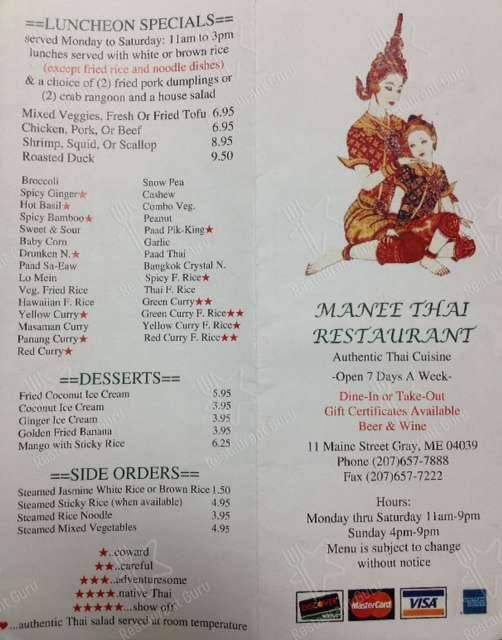 ==LUNCHEON SPECIALS==
served Monday to Saturday: 11am to 3pm
lunches served with white or brown rice
(except fried rice and noodle dishes)
& a choice of (2) fried pork dumplings or
(2) crab rangoon and a house salad
Mixed Veggies, Fresh Or Fried Tofu 6.95
Chicken, Pork, Or Beef 6.95
Shrimp, Squid, Or Scallop 8.95
Roasted Duck 9.50
Broccoli
Spicy Ginger★
Hot Basil★
Spicy Bamboo★
Sweet & Sour
Baby Corn
Drunken N.★
Paad Sa-Eaw
Lo Mein
Veg. Fried Rice
Hawaiian F. Rice
Yellow Curry★
Masaman Curry
Panang Curry★
Red Curry★
Snow Pea
Cashew
Combo Veg.
Peanut
Paad Pik-King★
Garlic
Paad Thai
Bangkok Crystal N.
Spicy F. Rice★
Thai F. Rice
Green Curry★★
Green Curry F. Rice★★
Yellow Curry F. Rice★
Red Curry F. Rice★★
==DESSERTS==
Fried Coconut Ice Cream 5.95
Coconut Ice Cream 3.95
Ginger Ice Cream 3.95
Golden Fried Banana 3.95
Mango with Sticky Rice 6.25
==SIDE ORDERS==
Steamed Jasmine White Rice or Brown Rice 1.50
Steamed Sticky Rice (when available) 4.95
Steamed Rice Noodle 3.95
Steamed Mixed Vegetables 4.95
★..coward
★★..careful
★★★..adventuresome
★★★★.native Thai
★★★★★...show off
♥...authentic Thai salad served at room temperature
MANEE THAI
RESTAURANT
Authentic Thai Cuisine
-Open 7 Days A Week-
Dine-In or Take-Out
Gift Certificates Available
Beer & Wine
11 Maine Street Gray, ME 04039
Phone (207)657-7888
Fax (207)657-7222
Hours:
Monday thru Saturday 11am-9pm
Sunday 4pm-9pm
Menu is subject to change
without notice
DISCOVER
MasterCard
VISA
Restaurant Guru